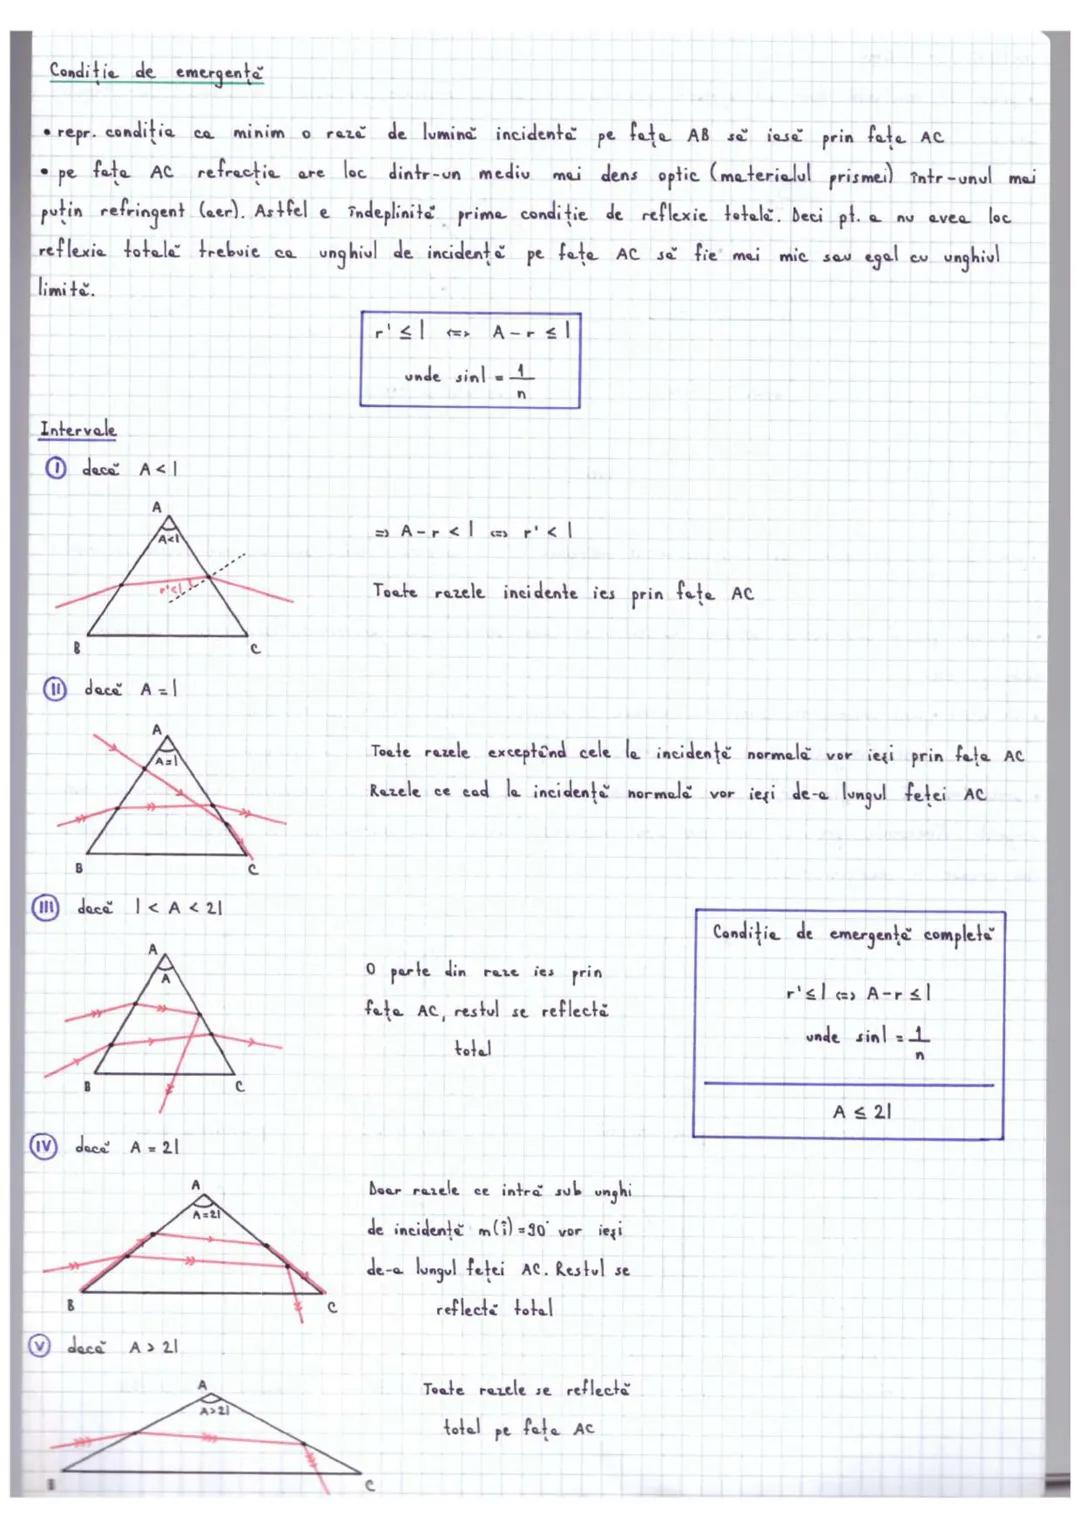 Condiție de emergență
• repr. condiția ca minim o rază de lumină incidentă pe fața AB să iasă prin fața AC
• pe fața AC refracția are loc dintr-un mediu mai dens optic (materialul prismei) într-unul mai
puțin refringent (aer). Astfel e îndeplinită prima condiție de reflexie totală. Deci pt. a nu avea loc
reflexia totală trebuie ca unghiul de incidență pe fața AC să fie mai mic sau egal cu unghiul
limită.
r' ≤ l <=> A-r ≤ l
unde sinl = 1/n
Intervale
I dacă A < l
A
A<l
r'<l
B
C
=> A-r < l <=> r' < l
Toate razele incidente ies prin fața AC
II dacă A = l
A
A=l
B
C
Toate razele exceptând cele la incidență normală vor ieși prin fața AC
Razele ce cad la incidență normală vor ieși de-a lungul feței AC
III dacă l < A < 2l
A
A
B
C
O parte din raze ies prin
fața AC, restul se reflectă
total
Condiție de emergență completă
r' ≤ l <=> A-r ≤ l
unde sinl = 1/n
A ≤ 2l
IV dacă A = 2l
A
A=2l
B
C
Doar razele ce intră sub unghi
de incidență m(î)=90° vor ieși
de-a lungul feței AC. Restul se
reflectă total
V dacă A > 2l
A
A>2l
B
C
Toate razele se reflectă
total pe fața AC